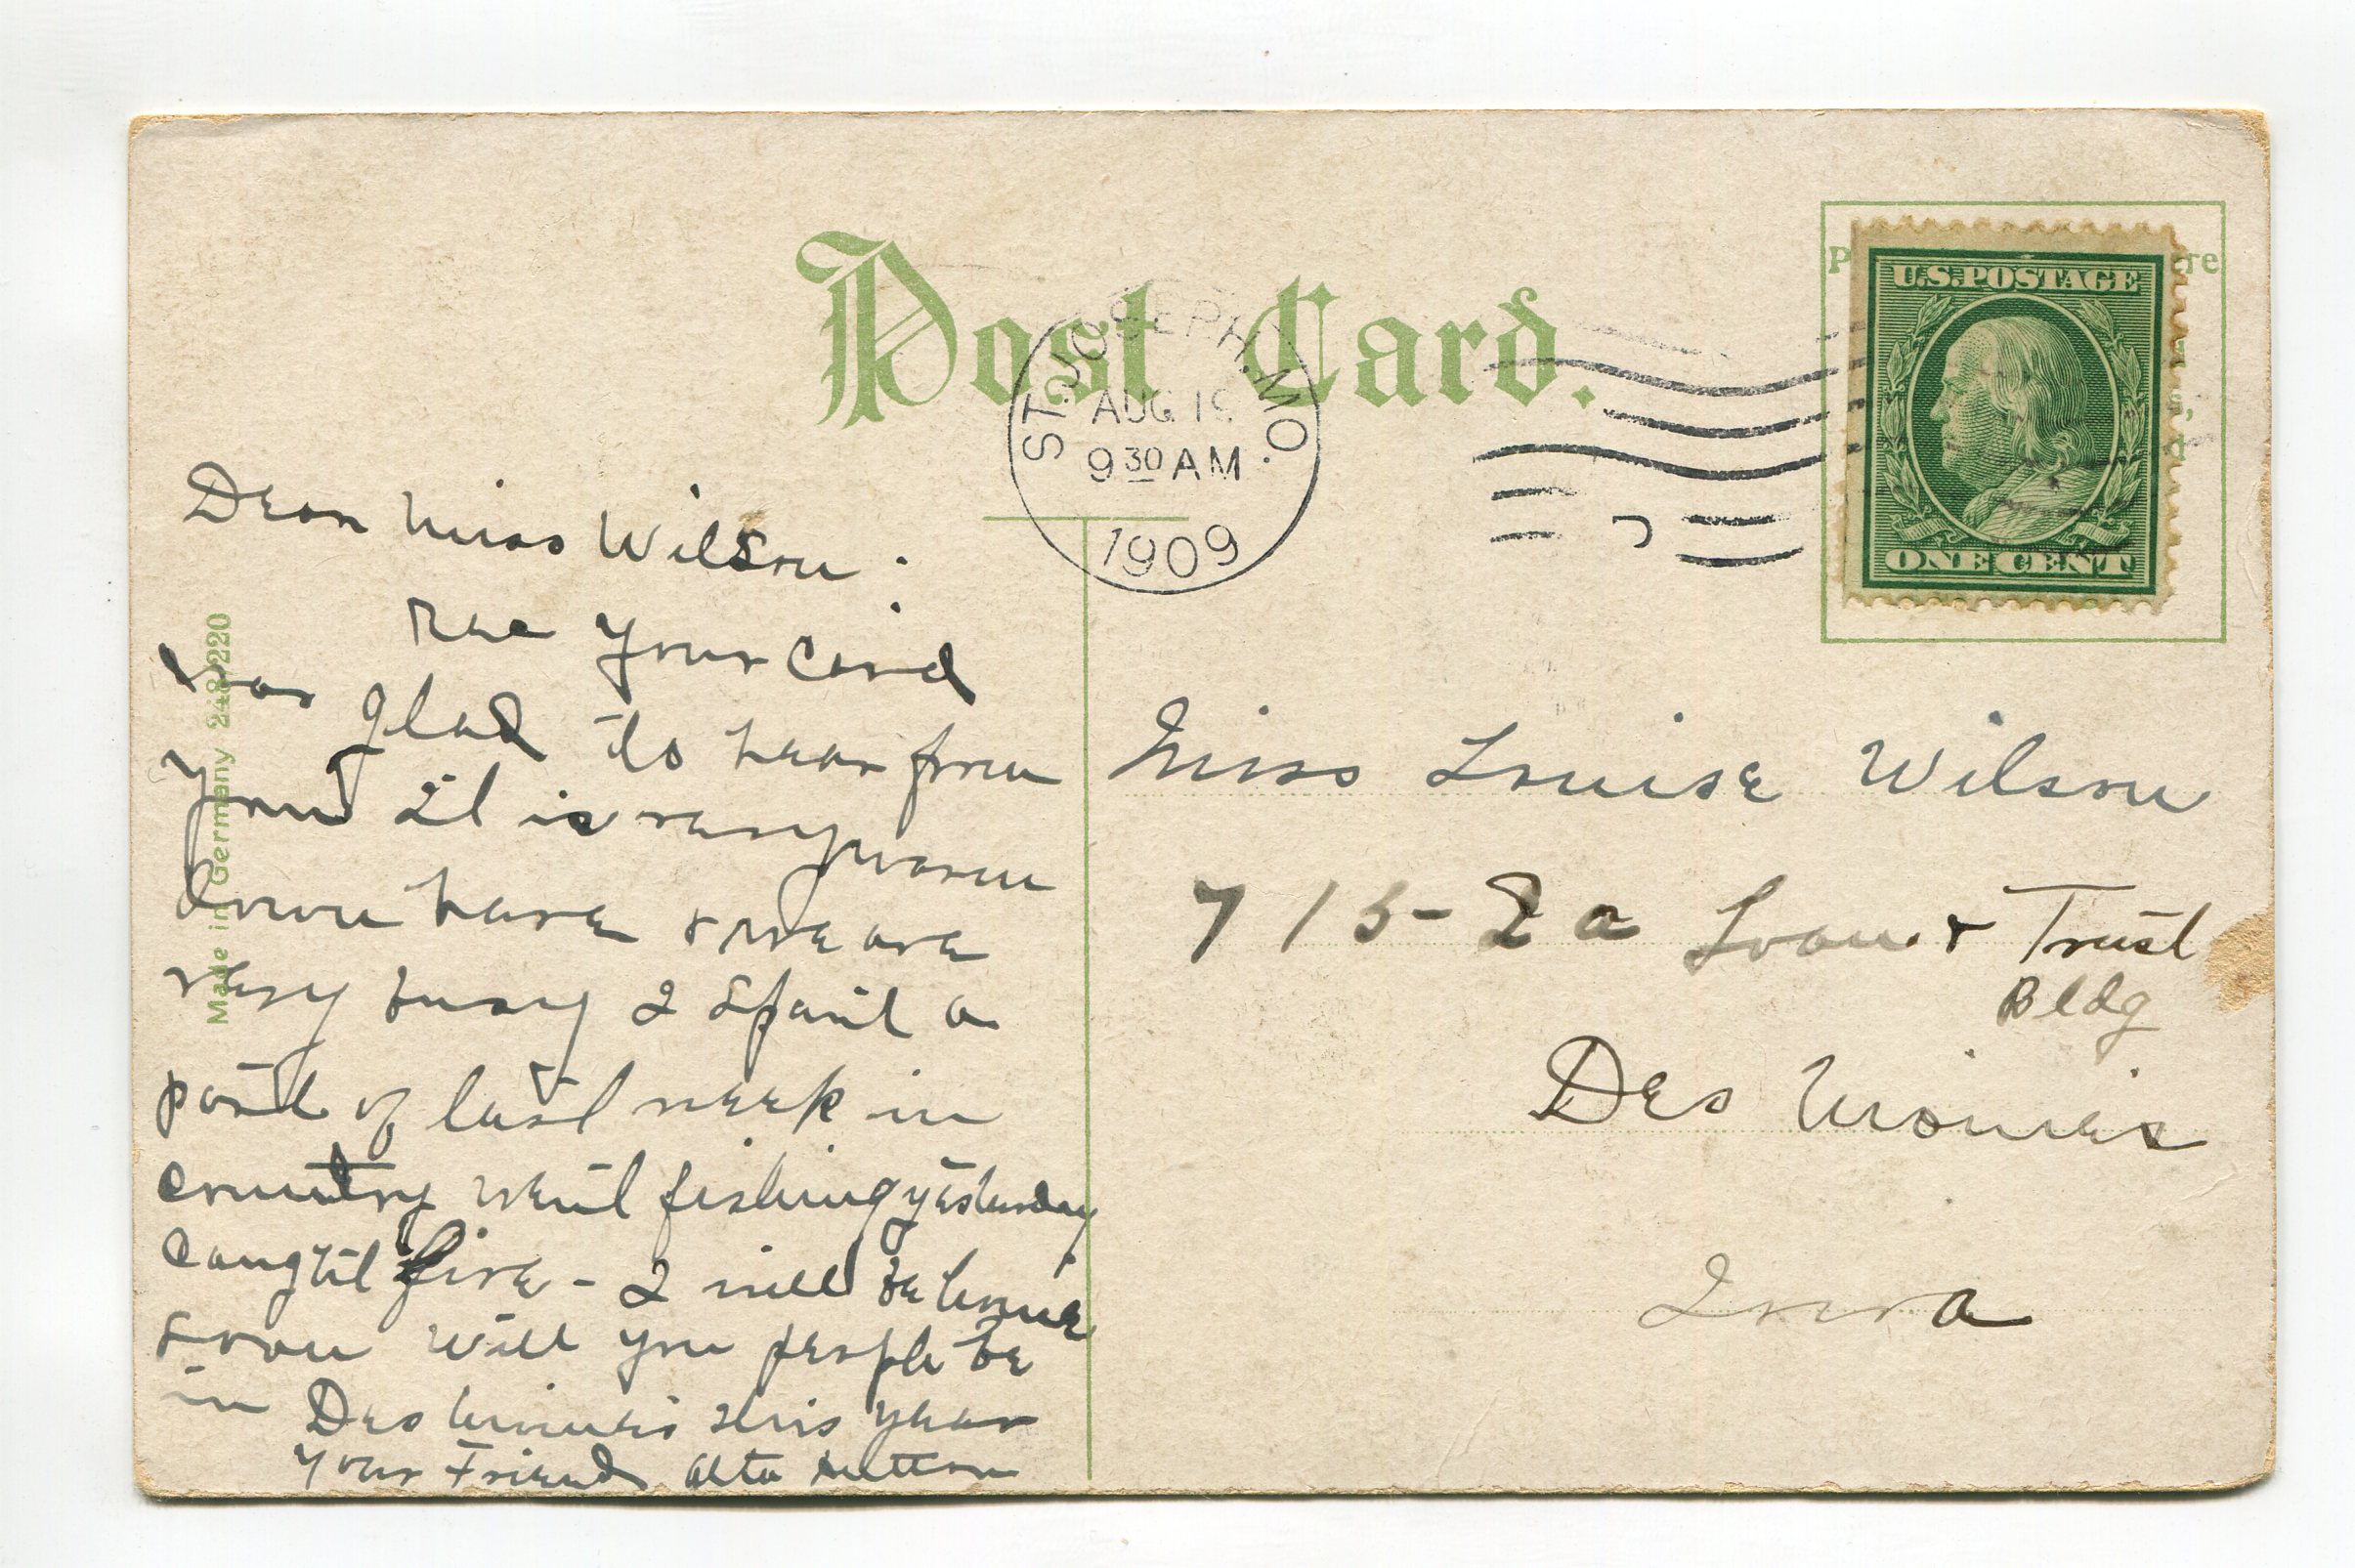 Post Card.
ST. JOSEPH, MO.
AUG 19
9 30 AM
1909
U.S. POSTAGE
ONE CENT
Made in Germany 248/220
Dear Miss Wilson.
Rec your card
was glad to hear from
you It is very warm
down here & we are
very busy I spent a
part of last week in
country went fishing yesterday
caught five - I will be home
soon will you people be
in Des Moines this year
Your Friend Alta
Miss Louise Wilson
715-
Loan & Trust
Bldg
Des Moines
Iowa